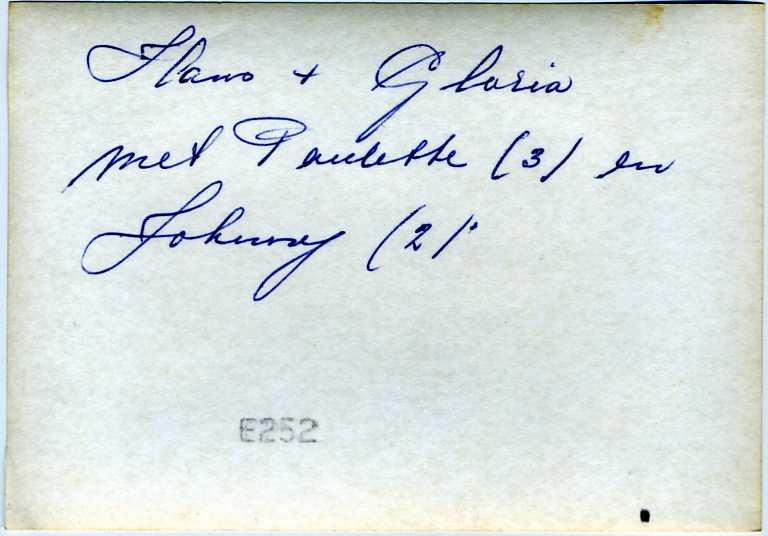 Hans + Gloria
met Paulette (3) en
Johnny (2).
E252